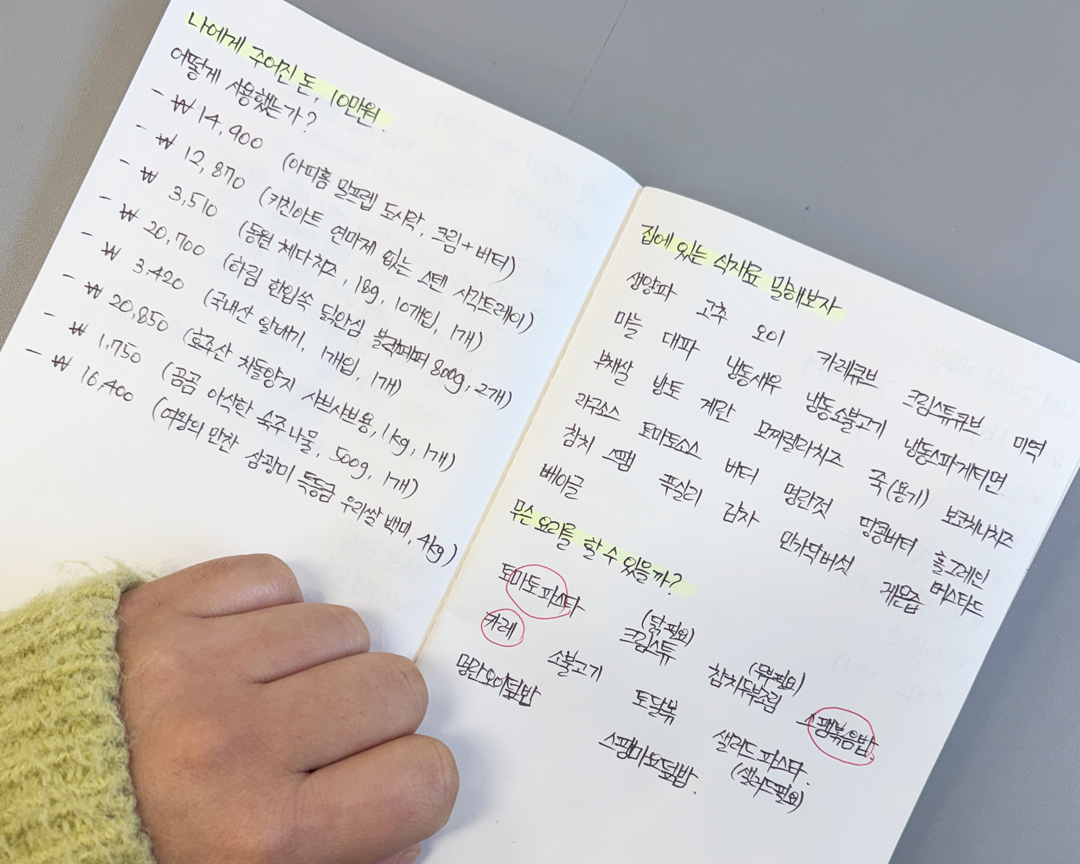 나에게 주어진 돈, 10만원.
어떻게 사용했는가?
- ₩14,900 (아피홈 밀프렙 도시락, 크림+버터)
- ₩ 12,870 (키친아트 연마제 없는 스텐 사각트레이)
- ₩ 3,510 (동원 체다치즈, 18g, 10개입, 1개)
- ₩ 20,700 (하림 한입쏙 닭안심 블랙페퍼 800g, 2개)
- ₩ 3,420 (국내산 알배기, 1개입, 1개)
- ₩ 20,850 (호주산 차돌양지 샤브샤브용, 1kg, 1개)
- ₩ 1,750 (곰곰 아삭한 숙주나물, 500g, 1개)
- ₩ 16,400 (여왕의 만찬 삼광미 특등급 우리쌀 백미, 4kg)
집에 있는 식자료 말해보자
생양파 고추 오이 카레큐브 크림스튜큐브 미역
마늘 대파 냉동새우 냉동소불고기 냉동스파게티면
부채살 방토 계란 모짜렐라치즈 죽(용기) 보코치니치즈
라구소스 토마토소스 버터 명란젓 땅콩버터 홀그레인 머스타드
참치 스팸 푸실리 감자 만가닥버섯 레몬즙
베이글
무슨 요리를 할 수 있을까?
토마토파스타 (닭필요) 크림스튜 (무필요) 참치무조림 스팸볶음밥
카레 소불고기 토달볶 샐러드 파스타. (샐러드필요)
명란오이덮밥 스팸마요덮밥.